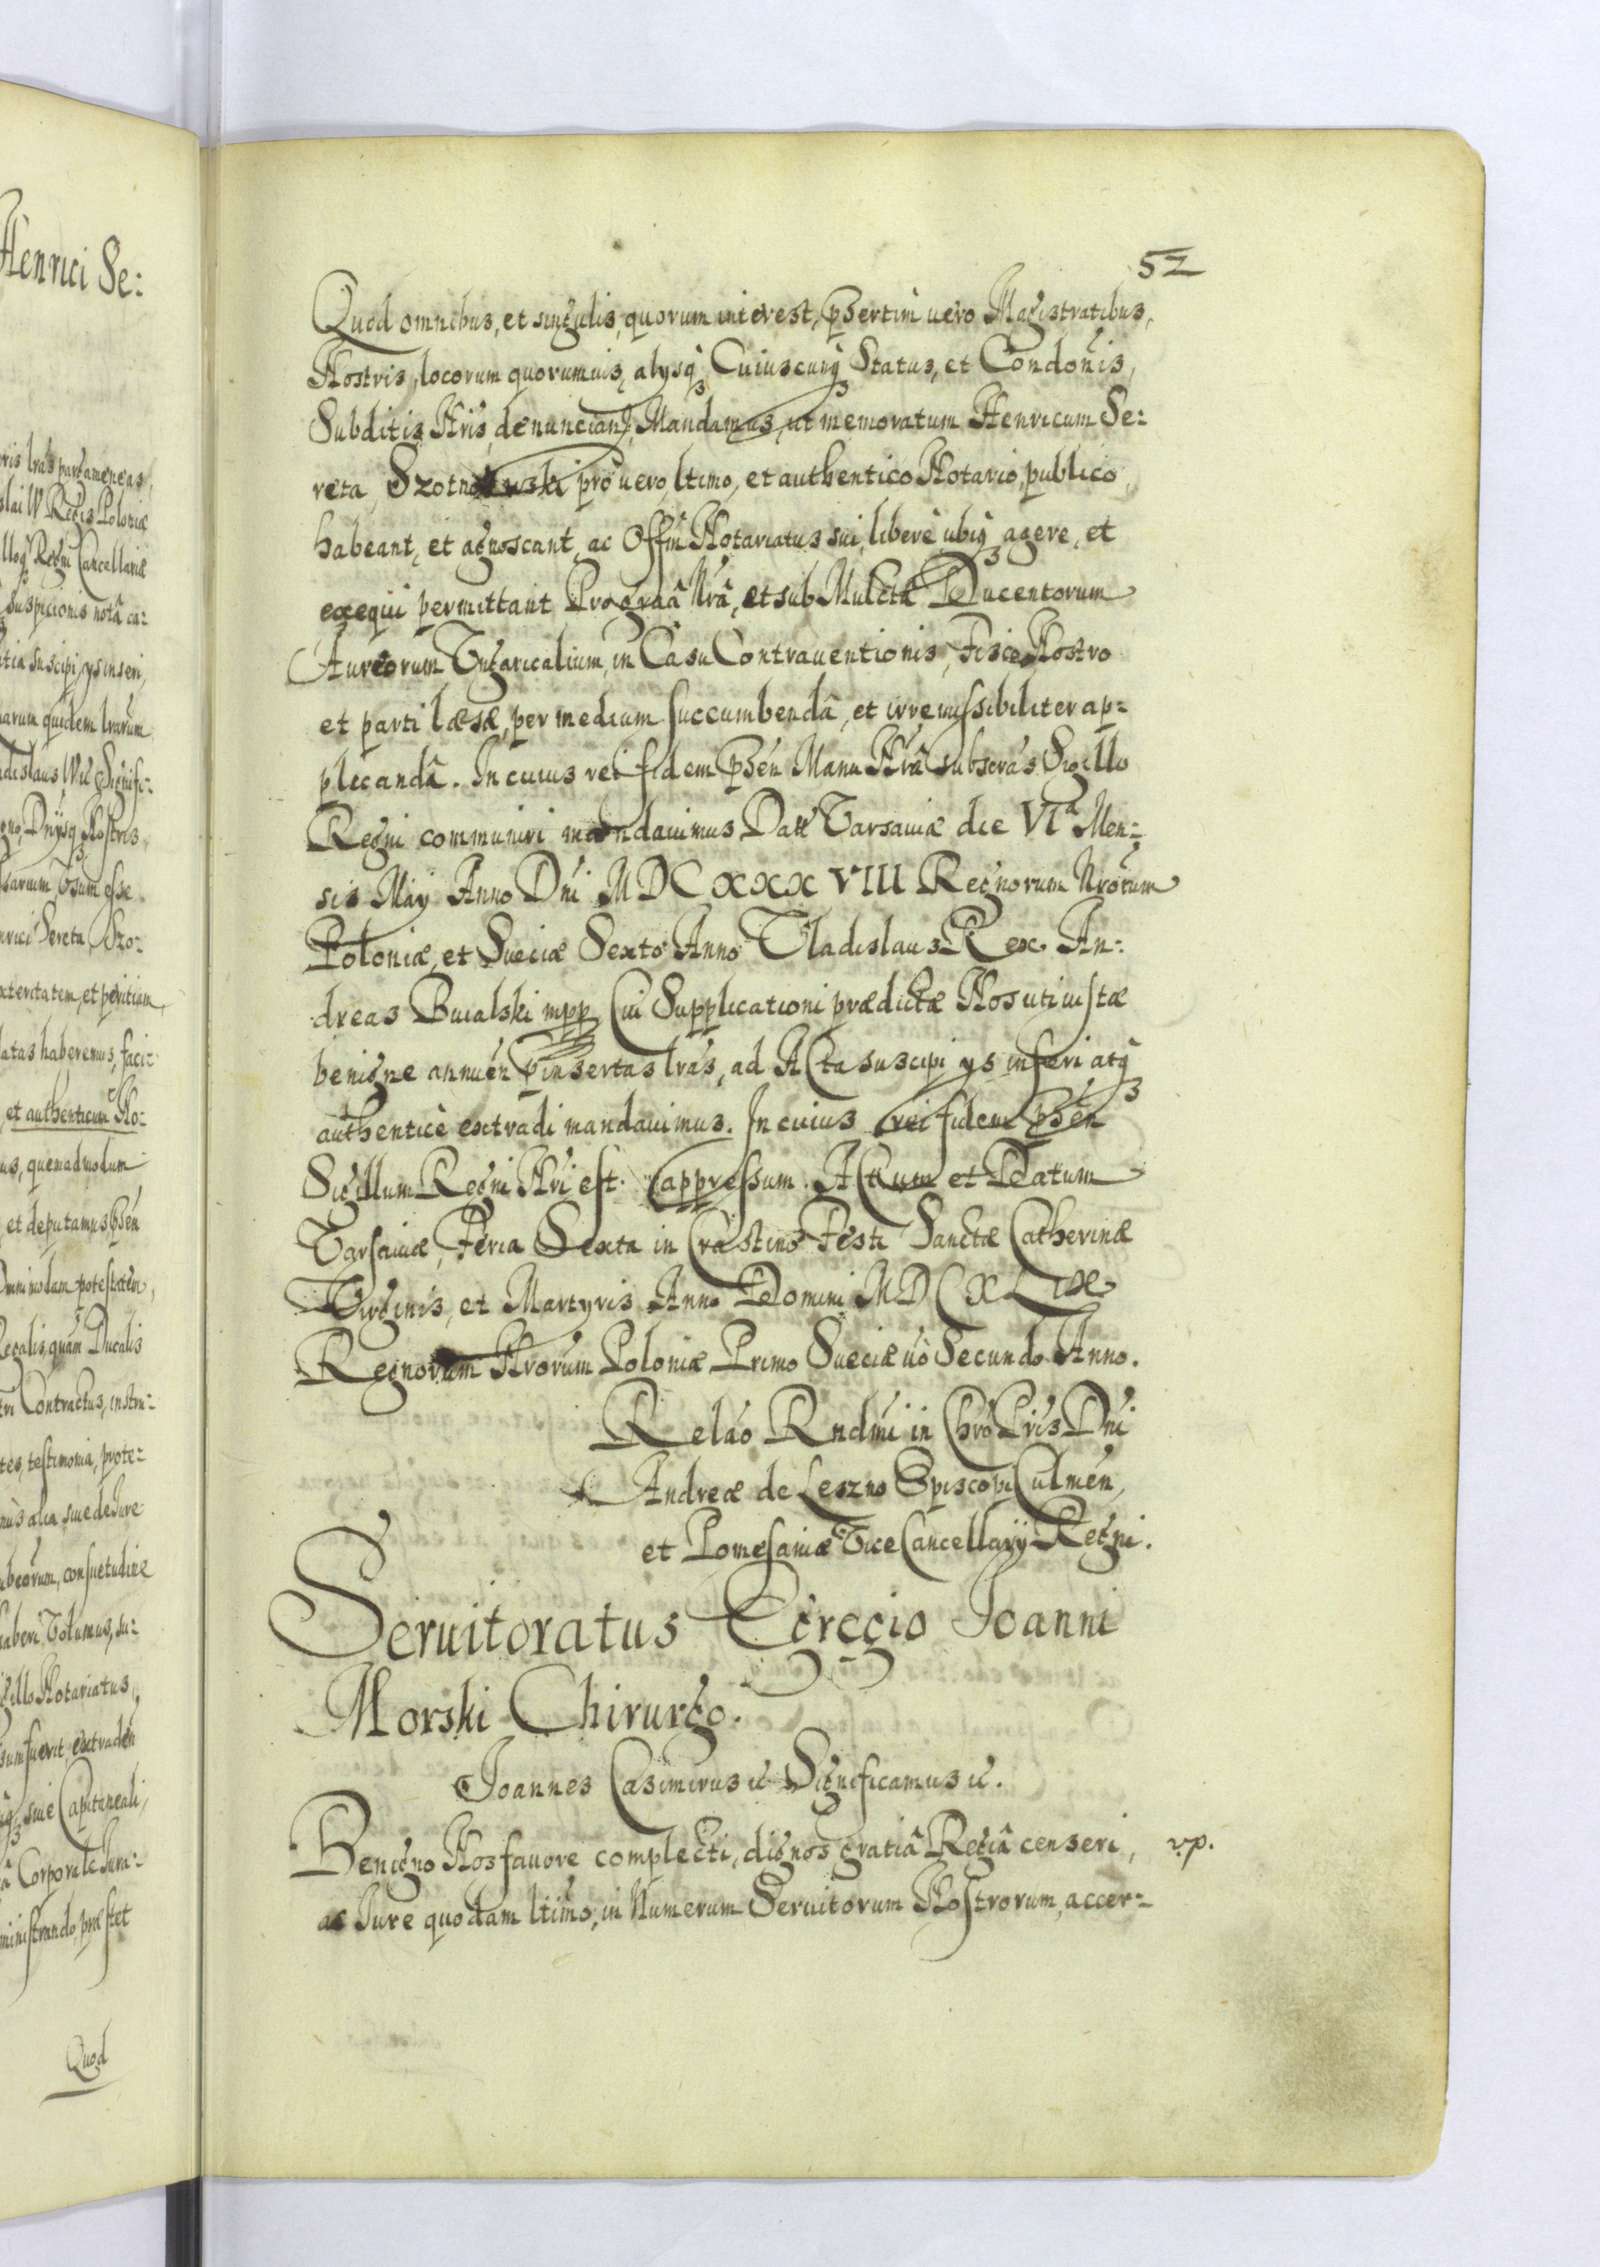 Henrici Se:
oris lras pargameneas,
slai W Regis Poloniæ
Regni Cancellariæ
suspicionis notâ ca-
suscipi, ys inseri,
quidem lrarum
Signifi:
Dnysq Nostris
esse
Sereta Szo:
et peritiam
latas haberemus, faci:
et authenticum No-
us, quemadmodum
et deputamus phsen
Omnimodam potestatem,
Regalis quàm Ducalis
Contractus, instru-
tes, testimonia, prote-
alia siue de Iure
consuetudine
haberi Volumus, su-
Notariatus,
fuerit, extraden
siue Capitaneali,
Corporale Iura-
ministrando, præstet
Quod
52
Quod omnibus, et singulis, quorum interest, pšertim uero Magistratibus,
Nostris, locorum quorumuis, alysq Cuiuscunq Status, et Condonis,
Subditis Nris, denuncian, Mandamus, ut memoratum Henricum Se:
reta, Szotnowski pro uero, ltimo, et authentico Notario, publico,
habeant, et agnoscant, ac Offm Notariatus sui, liberè ubiq agere, et
exequi permittant Pro graâ Nrâ, et sub Mulctâ Ducentorum
Aureorum Vngaricalium, in Casu Contrauentionis, Fisco Nostro
et parti læsæ, per medium succumbendâ, et irremissibiliter ap-
plicandâ. In cuius rei fidem phsen Manu Nrâ subscras Sigillo
Regni communiri mandauimus Datt Varsauiæ die VIa Men-
sis May Anno Dni MDCXXXVIII Regnorum Nrorum
Poloniæ, et Sueciæ Sexto Anno Vladislaus Rex. An:
dreas Buialski mpp Cui Supplicationi prædictæ Nos uti iustæ
benigne annuen pinsertas lras, ad Acta suscipi ys inseri atq
authenticè extradi mandauimus. In cuius rei fidem phsen
Sigillum Regni Nri est appressum. Actum et Datum
Varsauiæ, Feria Sexta in Crastino Festi Sanctæ Catherinæ
Virginis, et Martyris Anno Domini MDCXLIX
Regnorum Nrorum Poloniæ Primo Sueciæ uo Secundo Anno.
Relao Rndmi in Chro Pris Dni
Andreæ de Leszno Episcopi Culmen,
et Pomesaniæ Vice Cancellarij Regni.
Seruitoratus Egregio Ioanni
Morski Chirurgo.
Ioannes Casimirus &c Significamus &c.
Benigno Nos fauore complecti, dignos gratiâ Regiâ censeri, v.p.
ac Iure quodam ltimo, in Numerum Seruitorum Nostrorum, accer-